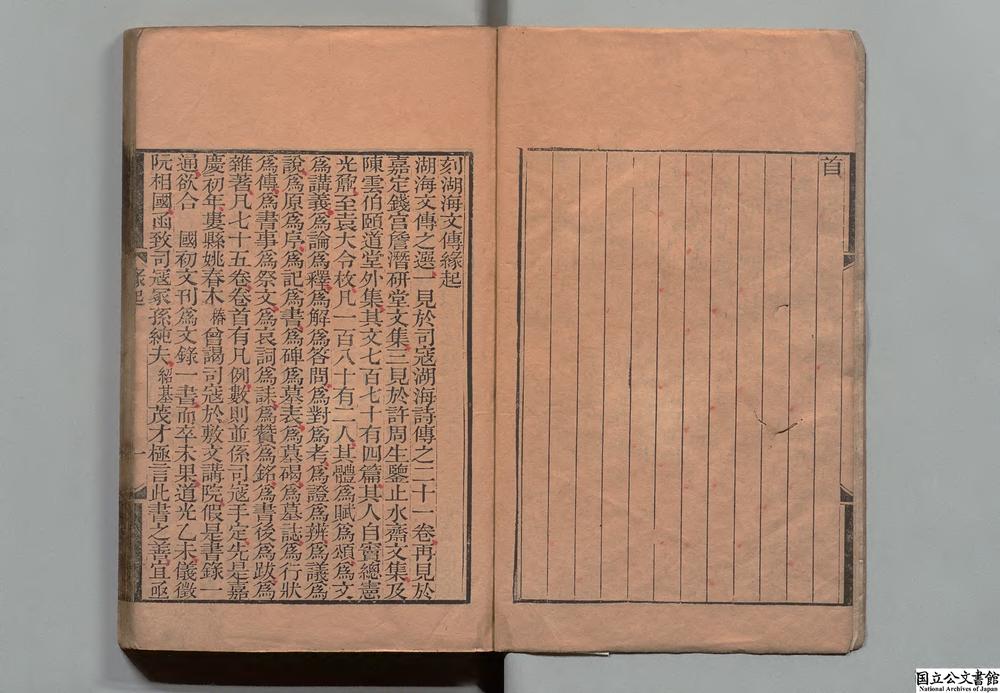 首
刻湖海文傳緣起
湖海文傳之選一見於司寇湖海詩傳之二十一卷再見於
嘉定錢宮詹潛研堂文集三見於許周生鑒止水齋文集及
陳雲伯頤道堂外集其文七百七十有四篇其人自竇總憲
光鼐至袁大令枚凡一百八十有二人其體爲賦爲頌爲文
爲講義爲論爲釋爲解爲答問爲對爲考爲證爲辨爲議爲
說爲原爲序爲記爲書爲碑爲墓表爲墓碣爲墓誌爲行狀
爲傳爲書事爲祭文爲哀詞爲誄爲贊爲銘爲書後爲跋爲
雜著凡七十五卷卷首有凡例數則並係司寇手定先是嘉
慶初年婁縣姚春木椿曾謁司寇於敷文講院假是書錄一
通欲合 國初文刊爲文錄一書而卒未果道光乙未儀徵
阮相國函致司寇冢孫純夫紹基茂才極言此書之善宜亟
緣起
一
国立公文書館
National Archives of Japan